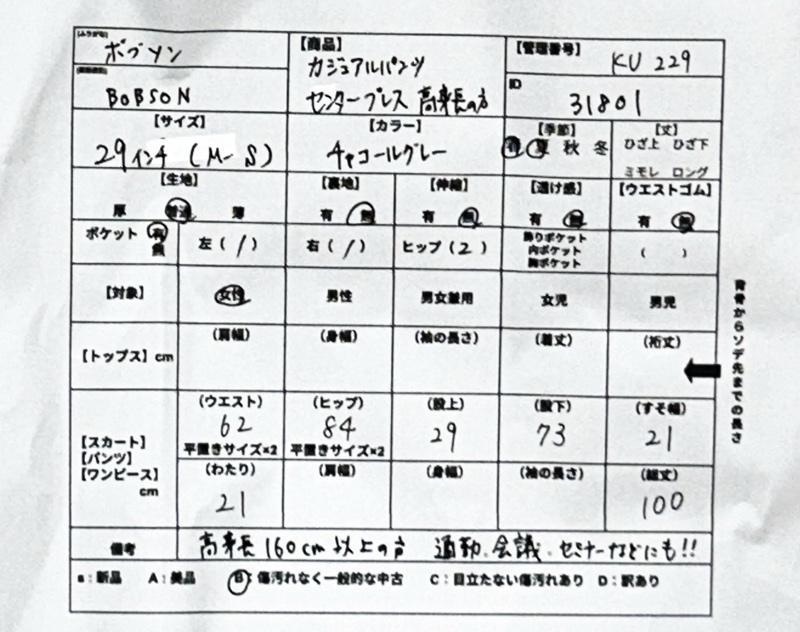 ボブソン
BOBSON
【商品】
カジュアルパンツ
センタープレス 高身長の方
【管理番号】 KU 229
ID 31801
【サイズ】
29インチ (M-S)
【カラー】
チャコールグレー
【季節】
春 夏 秋 冬
【丈】
ひざ上 ひざ下
ミモレ ロング
【生地】
厚 普通 薄
【裏地】
有 無
【伸縮】
有 無
【透け感】
有 無
【ウエストゴム】
有 無
ポケット 有
無
左 ( 1 )
右 ( 1 )
ヒップ ( 2 )
飾りポケット
内ポケット
胸ポケット
( )
【対象】 女性 男性 男女兼用 女児 男児
【トップス】cm
(肩幅) (身幅) (袖の長さ) (着丈) (裄丈)
背骨からソデ先までの長さ
【スカート】
【パンツ】
【ワンピース】
cm
(ウエスト)
62
平置きサイズ×2
(ヒップ)
84
平置きサイズ×2
(股上)
29
(股下)
73
(すそ幅)
21
(わたり)
21
(肩幅) (身幅) (袖の長さ)
(総丈)
100
備考 高身長160cm以上の方 通勤、会議、セミナーなどにも!!
s:新品 A:美品 B:傷汚れなく一般的な中古 C:目立たない傷汚れあり D:訳あり